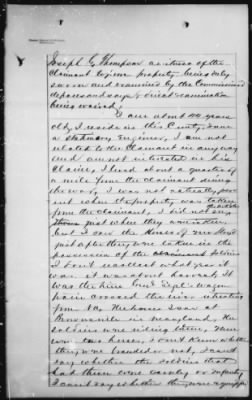 Joseph G. Thompson a witness of the
Claimant to prove property being duly
sworn and examined by the Commissioner
deposes and says direct examination
being waived:
I am about 40 years
old, I reside in this County, am
a Stationary Engineer, I am not
related to the Claimant in any way
and am not interested in his
Claim, I lived about a quarter of
a mile from the Claimant during
the war, I was not actually
present when the property was taken
from the claimant, I did not see
just when they
but I saw the Horses
just after they were taken in the
possession of the soldiers
I don't recollect what year it
was it was about harvest, It
was the time Genl wagon
train crossed the river
from Va. The horses I saw at
in Maryland, the
soldiers were riding them, there
were two horses, I don't know whether
they were branded or not, I can't
say whether the soldiers that
had them were cavalry or infantry
I can't say whether they were